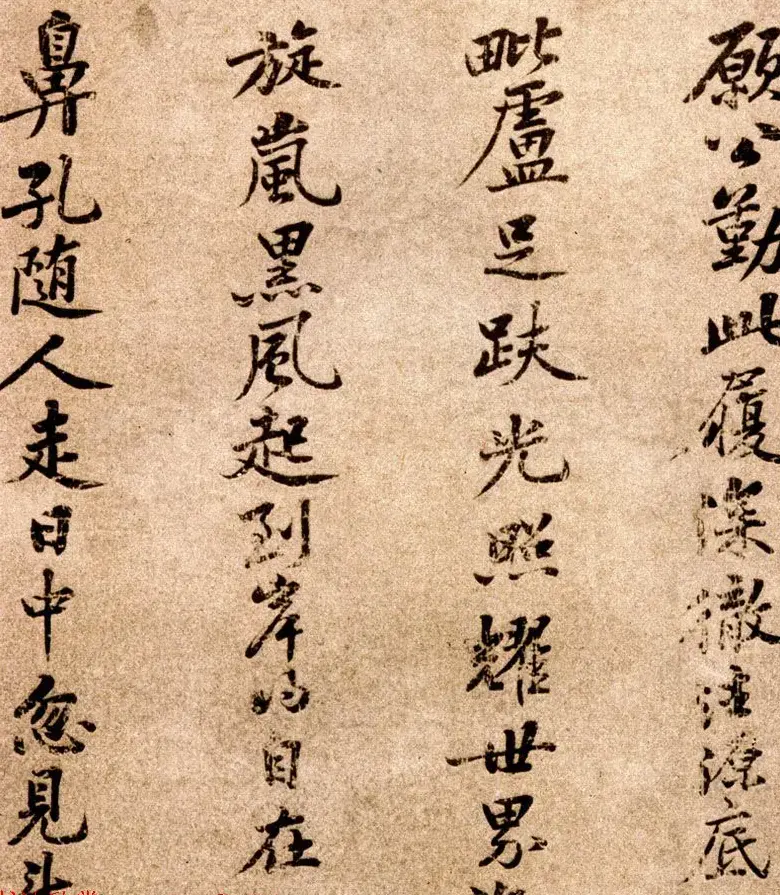 願公勤此履深徹法源底
毗盧足趺光照耀世界
旋嵐黒風起到岸得自在
鼻孔随人走日中忽見斗